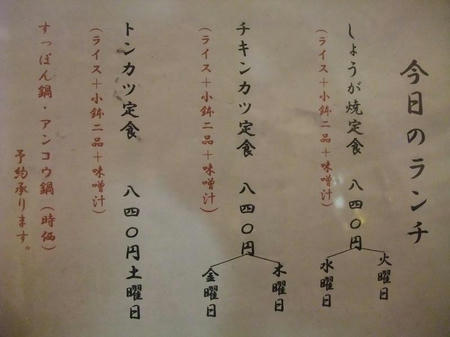 今日のランチ
しょうが焼定食 八四〇円
火曜日
水曜日
(ライス+小鉢二品+味噌汁)
チキンカツ定食 八四〇円
木曜日
金曜日
(ライス+小鉢二品+味噌汁)
トンカツ定食 八四〇円 土曜日
(ライス+小鉢二品+味噌汁)
すっぽん鍋・アンコウ鍋(時価)
予約承ります。